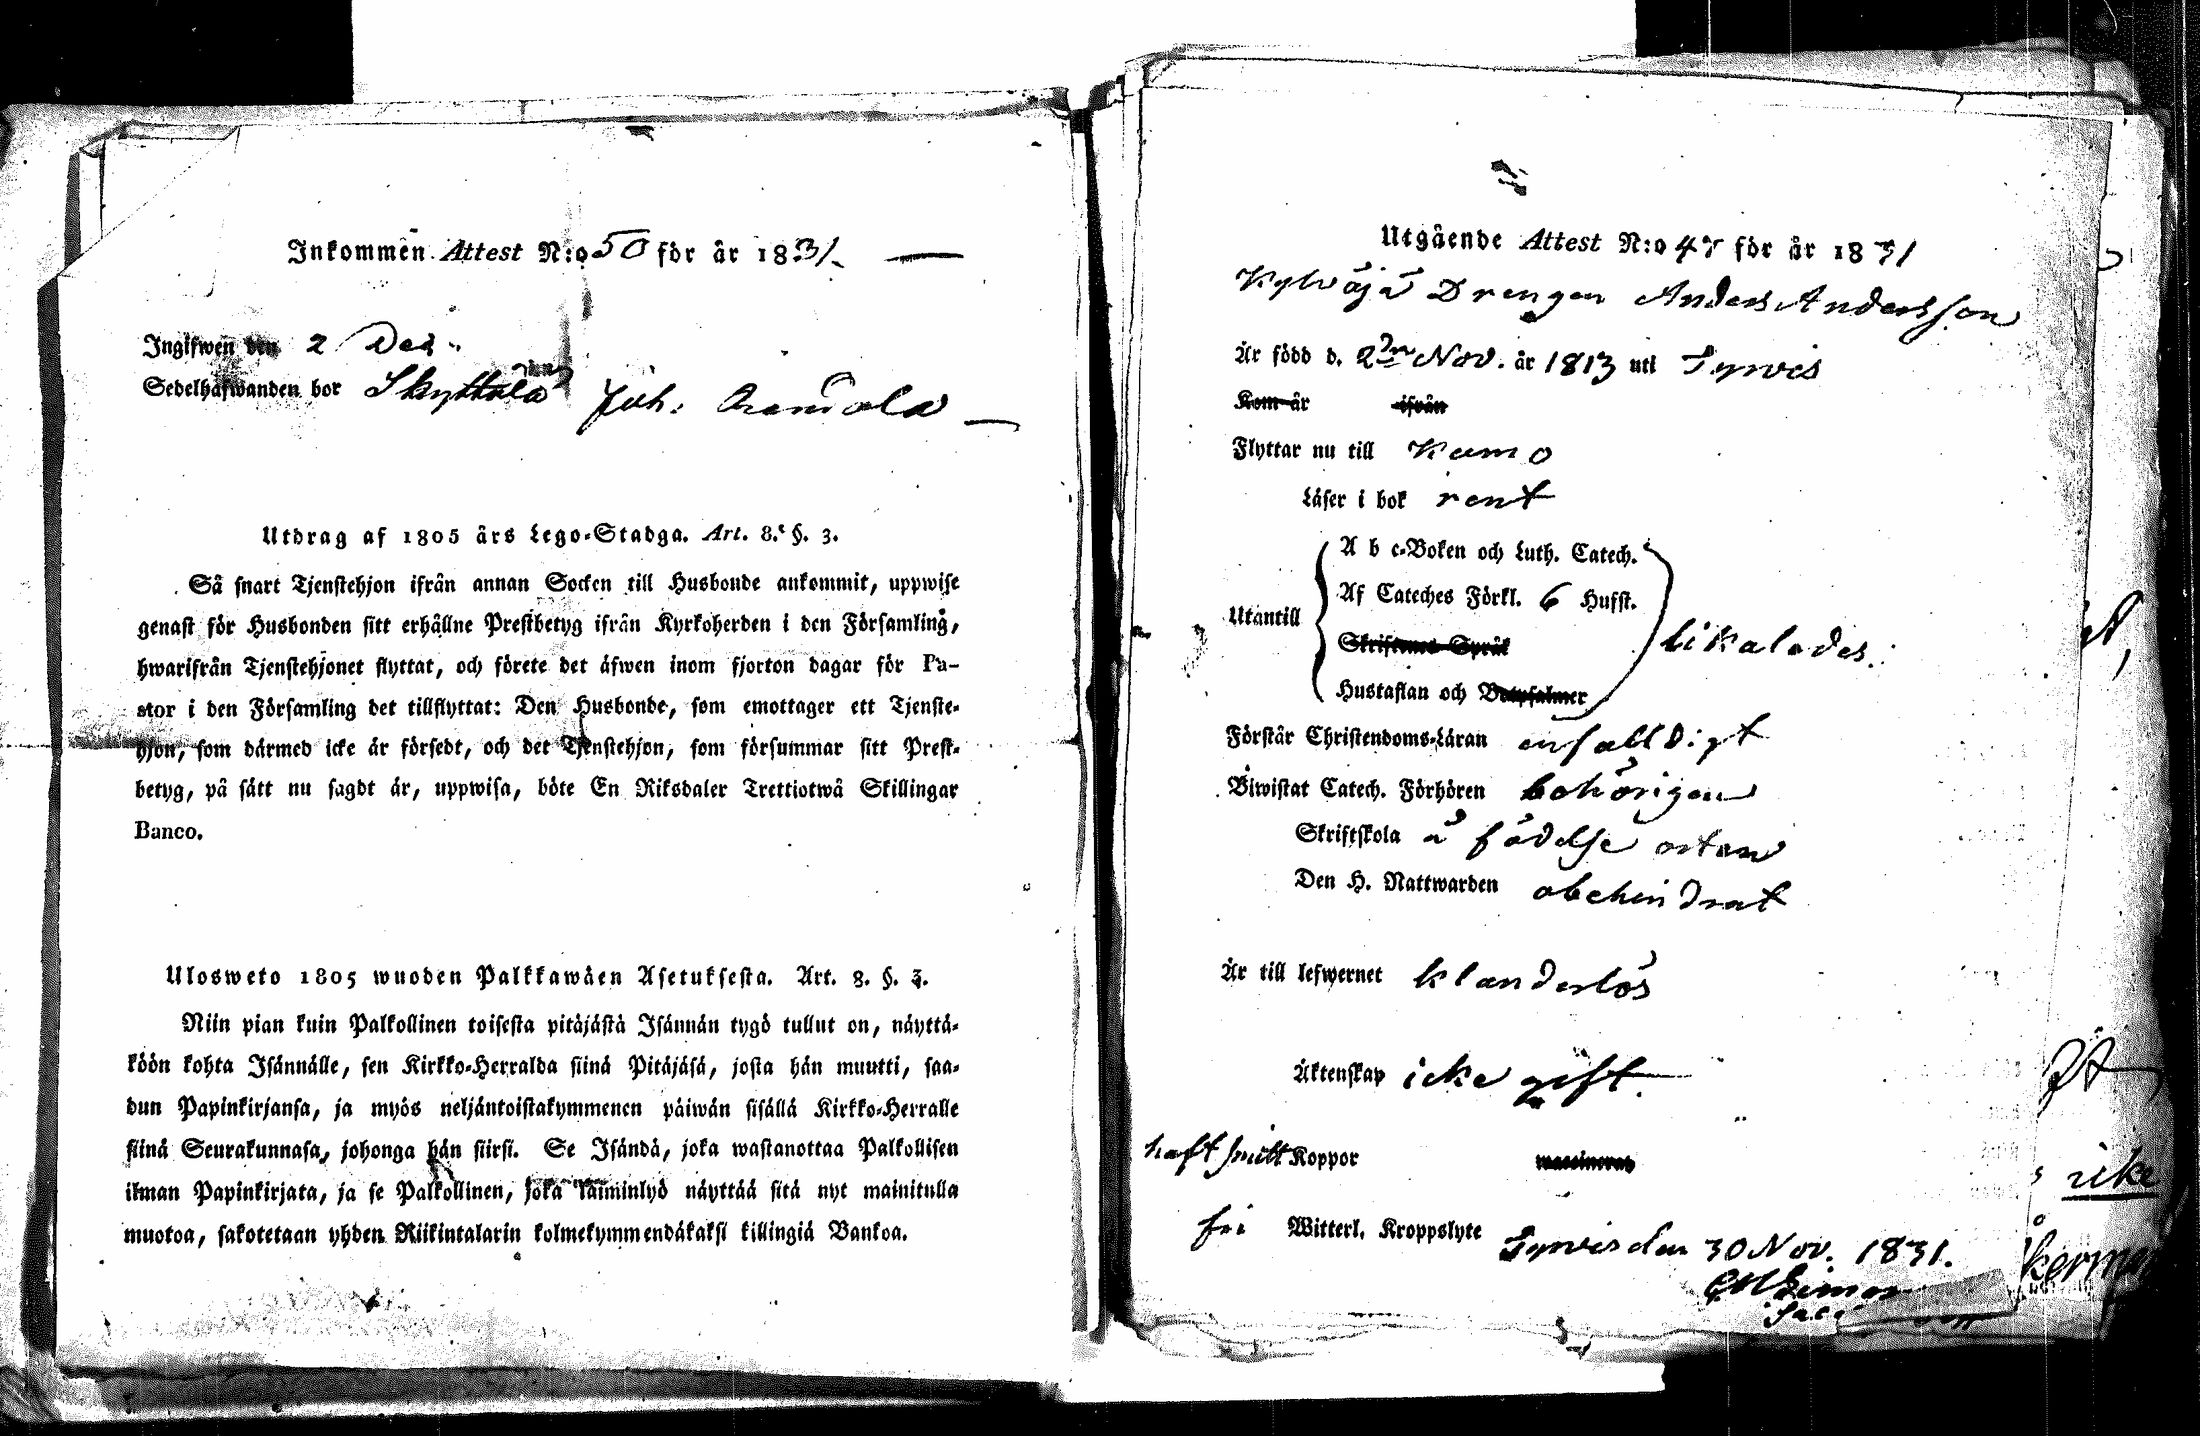 Inkommen Attest N:o 50 för år 1831.
Ingifwen den 2 Dec.
Sedelhafwanden bor Skyttälä Joh.
Utdrag af 1805 års Lego-Stadga. Art. 8. §. 3.
Så snart Tjenstehjon ifrån annan Socken till Husbonde ankommit, uppwise
genast för Husbonden sitt erhållne Prestbetyg ifrån Kyrkoherden i den Församling,
hwarifrån Tjenstehjonet flyttat, och förete det äfwen inom fjorton dagar för Pa-
stor i den Församling det tillflyttat: Den Husbonde, som emottager ett Tjenste-
hjon, som därmed icke är försedt, och det Tjenstehjon, som försummar sitt Prest-
betyg, på sätt nu sagdt är, uppwisa, böte En Riksdaler Trettiotwå Skillingar
Banco.
Ulosweto 1805 wuoden Palkkawäen Asetuksesta. Art. 8. §. 3.
Niin pian kuin Palkollinen toisesta pitäjästä Isännän tygö tullut on, näyttä-
köön kohta Isännälle, sen Kirkko-Herralda siinä Pitäjäsä, josta hän muutti, saa-
dun Papinkirjansa, ja myös neljäntoistakymmenen päiwän sisällä Kirkko-Herralle
siinä Seurakunnasa, johonga hän siirsi. Se Isändä, joka wastanottaa Palkollisen
ilman Papinkirjata, ja se Palkollinen, joka laiminlyö näyttää sitä nyt mainitulla
muotoa, sakotetaan yhden Riikintalarin kolmekymmendäkaksi killingiä Bankoa.
Utgående Attest N:o 47 för år 1831
Kylwäjä Drengen Anders Andersson
Är född d. 2dra Nov. år 1813 uti Tyrvis
Kom år ifrån
Flyttar nu till Kumo
Läser i bok rent
Utantill
A b c-Boken och Luth. Catech.
Af Cateches Förkl. 6 Hufst.
Skriftenes Språk
likaledes.
Hustaflan och Botpsalmer
Förstår Christendoms-Läran enfalldigt
Biwistat Catech. Förhören behörigen
Skriftskola å födelse orten
Den H. Nattwarden obehindrat
Är till lefwernet klanderlös
Äktenskap icke gift.
haft smitt Koppor vaccinerad
fri Witterl. Kroppslyte
Tyrvis den 30 Nov. 1831.